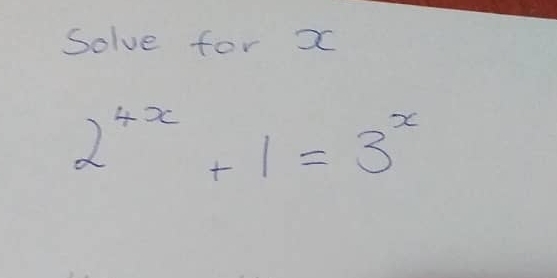 Solve for x
2^{4x} + 1 = 3^x